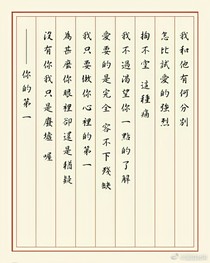 我和他有何分别
怎比試愛的強烈
掏不空 這種痛
我不過渴望你一點的了解
愛要的是完全 容不下殘缺
我只要做你心裡的第一
為甚麼你眼裡卻還是猶疑
沒有你我只是廢墟喔
——你的第一